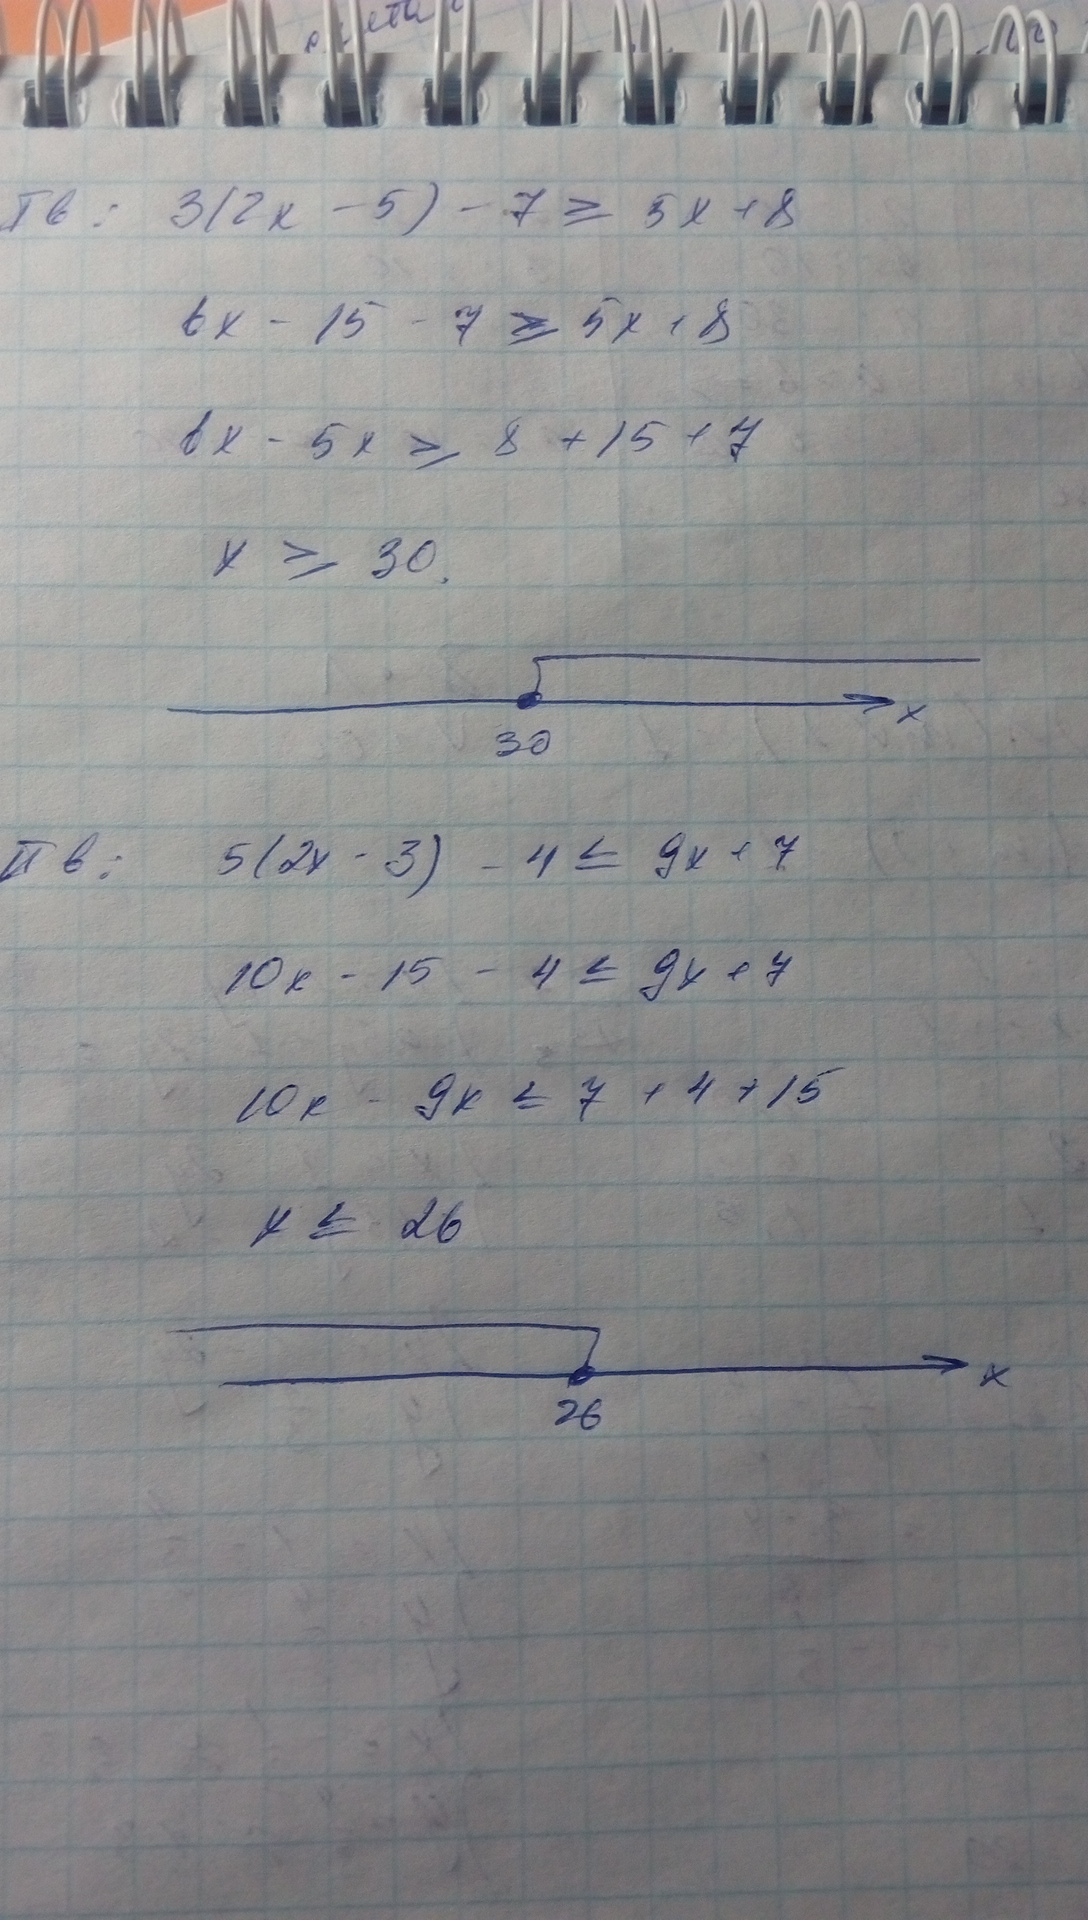 I в: 3(2x - 5) - 7 ≥ 5x + 8
6x - 15 - 7 ≥ 5x + 8
6x - 5x ≥ 8 + 15 + 7
x ≥ 30.
x
30
II в: 5(2x - 3) - 4 ≤ 9x + 7
10x - 15 - 4 ≤ 9x + 7
10x - 9x ≤ 7 + 4 + 15
x ≤ 26
x
26